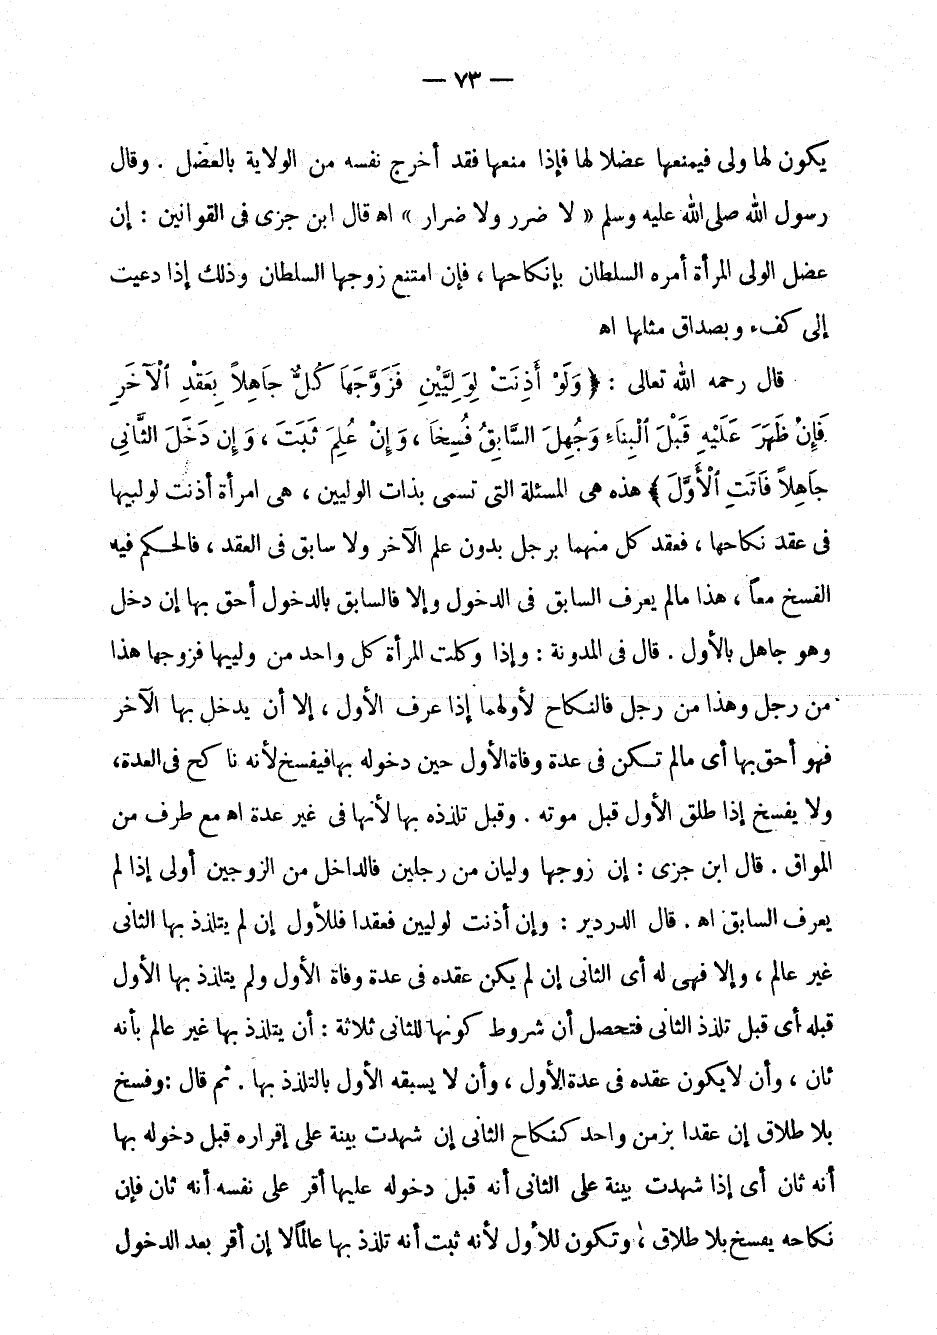 — ٧٣ —
يكون لها ولى فيمنعها عضلا لها فإذا منعها فقد أخرج نفسه من الولاية بالعضل . وقال
رسول الله صلى الله عليه وسلم « لا ضرر ولا ضرار » اه قال ابن جزى فى القوانين : إن
عضل الولى المرأة أمره السلطان بإنكاحها ، فإن امتنع زوجها السلطان وذلك إذا دعيت
إلى كفء وبصداق مثلها اه
قال رحمه الله تعالى : ﴿ وَلَوْ أَذِنَتْ لِوَلِيَّيْنِ فَزَوَّجَهَا كُلٌّ جَاهِلاً بِعَقْدِ الْآخَرِ
فَإِنْ ظَهَرَ عَلَيْهِ قَبْلَ الْبِنَاءِ وَجُهِلَ السَّابِقُ فُسِخَا ، وَإِنْ عُلِمَ ثَبَتَ ، وَإِن دَخَلَ الثَّانِى
جَاهِلاً فَاتَتِ الْأَوَّلَ ﴾ هذه هى المسئلة التى تسمى بذات الوليين ، هى امرأة أذنت لولييها
فى عقد نكاحها ، فعقد كل منهما برجل بدون علم الآخر ولا سابق فى العقد ، فالحكم فيه
الفسخ معاً ، هذا مالم يعرف السابق فى الدخول وإلا فالسابق بالدخول أحق بها إن دخل
وهو جاهل بالأول . قال فى المدونة : وإذا وكلت المرأة كل واحد من ولييها فزوجها هذا
من رجل وهذا من رجل فالنكاح لأولهما إذا عرف الأول ، إلا أن يدخل بها الآخر
فهو أحق بها أى مالم تكن فى عدة وفاة الأول حين دخوله بها فيفسخ لأنه ناكح فى العدة،
ولا يفسخ إذا طلق الأول قبل موته . وقبل تلذذه بها لأنها فى غير عدة اه مع طرف من
المواق . قال ابن جزى : إن زوجها وليان من رجلين فالداخل من الزوجين أولى إذا لم
يعرف السابق اه . قال الدردير : وإن أذنت لوليين فعقدا فللأول إن لم يتلذذ بها الثانى
غير عالم ، وإلا فهى له أى الثانى إن لم يكن عقده فى عدة وفاة الأول ولم يتلذذ بها الأول
قبله أى قبل تلذذ الثانى فتحصل أن شروط كونها للثانى ثلاثة : أن يتلذذ بها غير عالم بأنه
ثان ، وأن لايكون عقده فى عدة الأول ، وأن لا يسبقه الأول بالتلذذ بها . ثم قال : وفسخ
بلا طلاق إن عقدا بزمن واحد كنكاح الثانى إن شهدت بينة على إقراره قبل دخوله بها
أنه ثان أى إذا شهدت بينة على الثانى أنه قبل دخوله عليها أقر على نفسه أنه ثان فإن
نكاحه يفسخ بلا طلاق ، وتكون للأول لأنه ثبت أنه تلذذ بها عالمًا لا إن أقر بعد الدخول